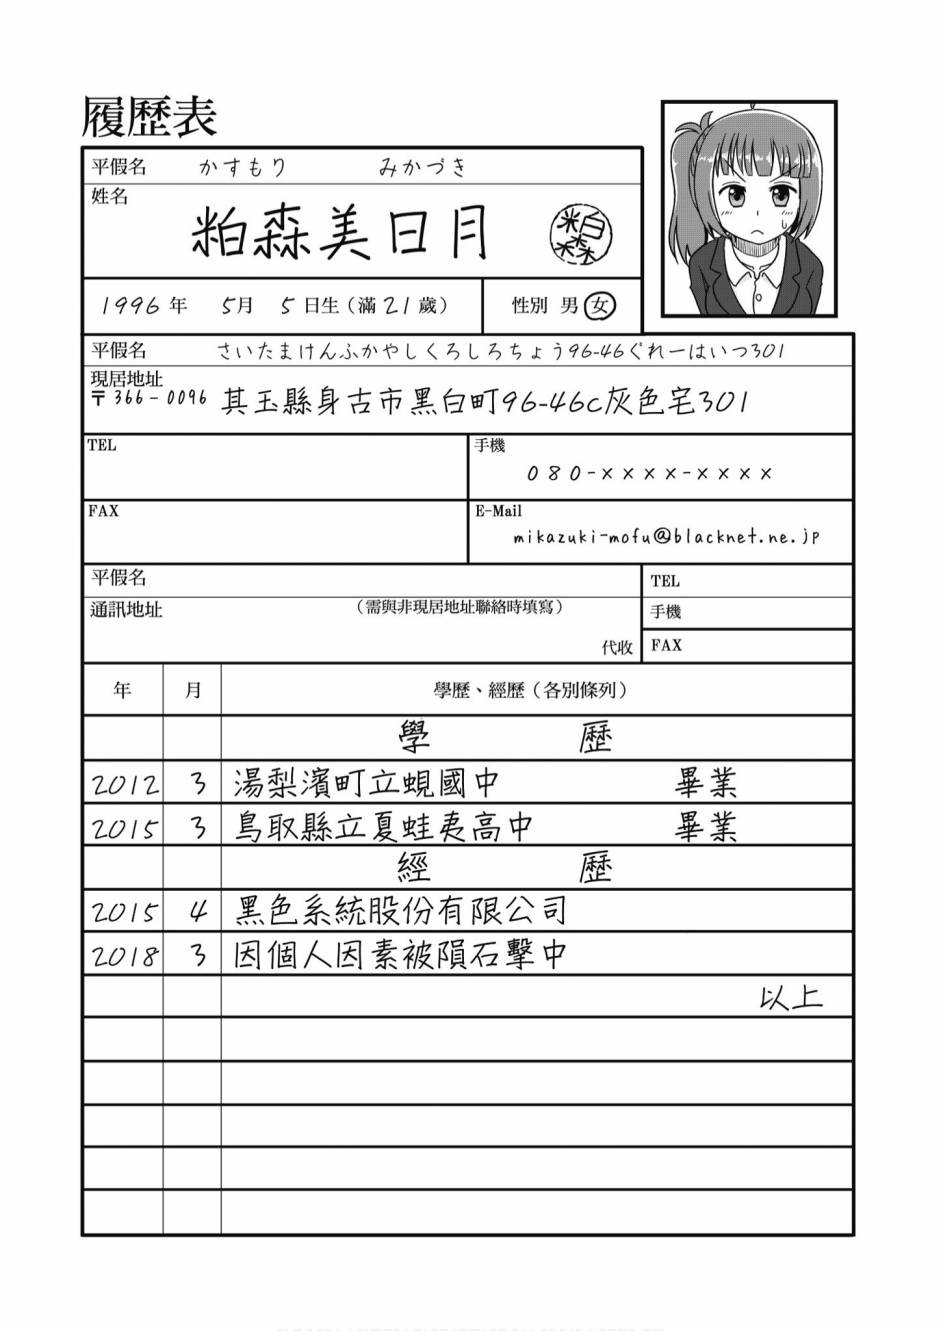 履歷表
平假名 かすもり みかづき
姓名
粕森美日月
粕森
1996年 5月 5日生（滿21歲） 性別 男 女
平假名 さいたまけんふかやしくろしろちょう96-46ぐれーはいつ301
現居地址
〒366-0096 其玉縣身古市黑白町96-46C灰色宅301
TEL 手機
080-××××-××××
FAX E-Mail
mikazuki-mofu@blacknet.ne.jp
平假名 TEL
通訊地址 （需與非現居地址聯絡時填寫） 手機
代收 FAX
年 月 學歷、經歷（各別條列）
學 歷
2012 3 湯梨濱町立蜆國中 畢業
2015 3 鳥取縣立夏蛙夷高中 畢業
經 歷
2015 4 黑色系統股份有限公司
2018 3 因個人因素被隕石擊中
以上